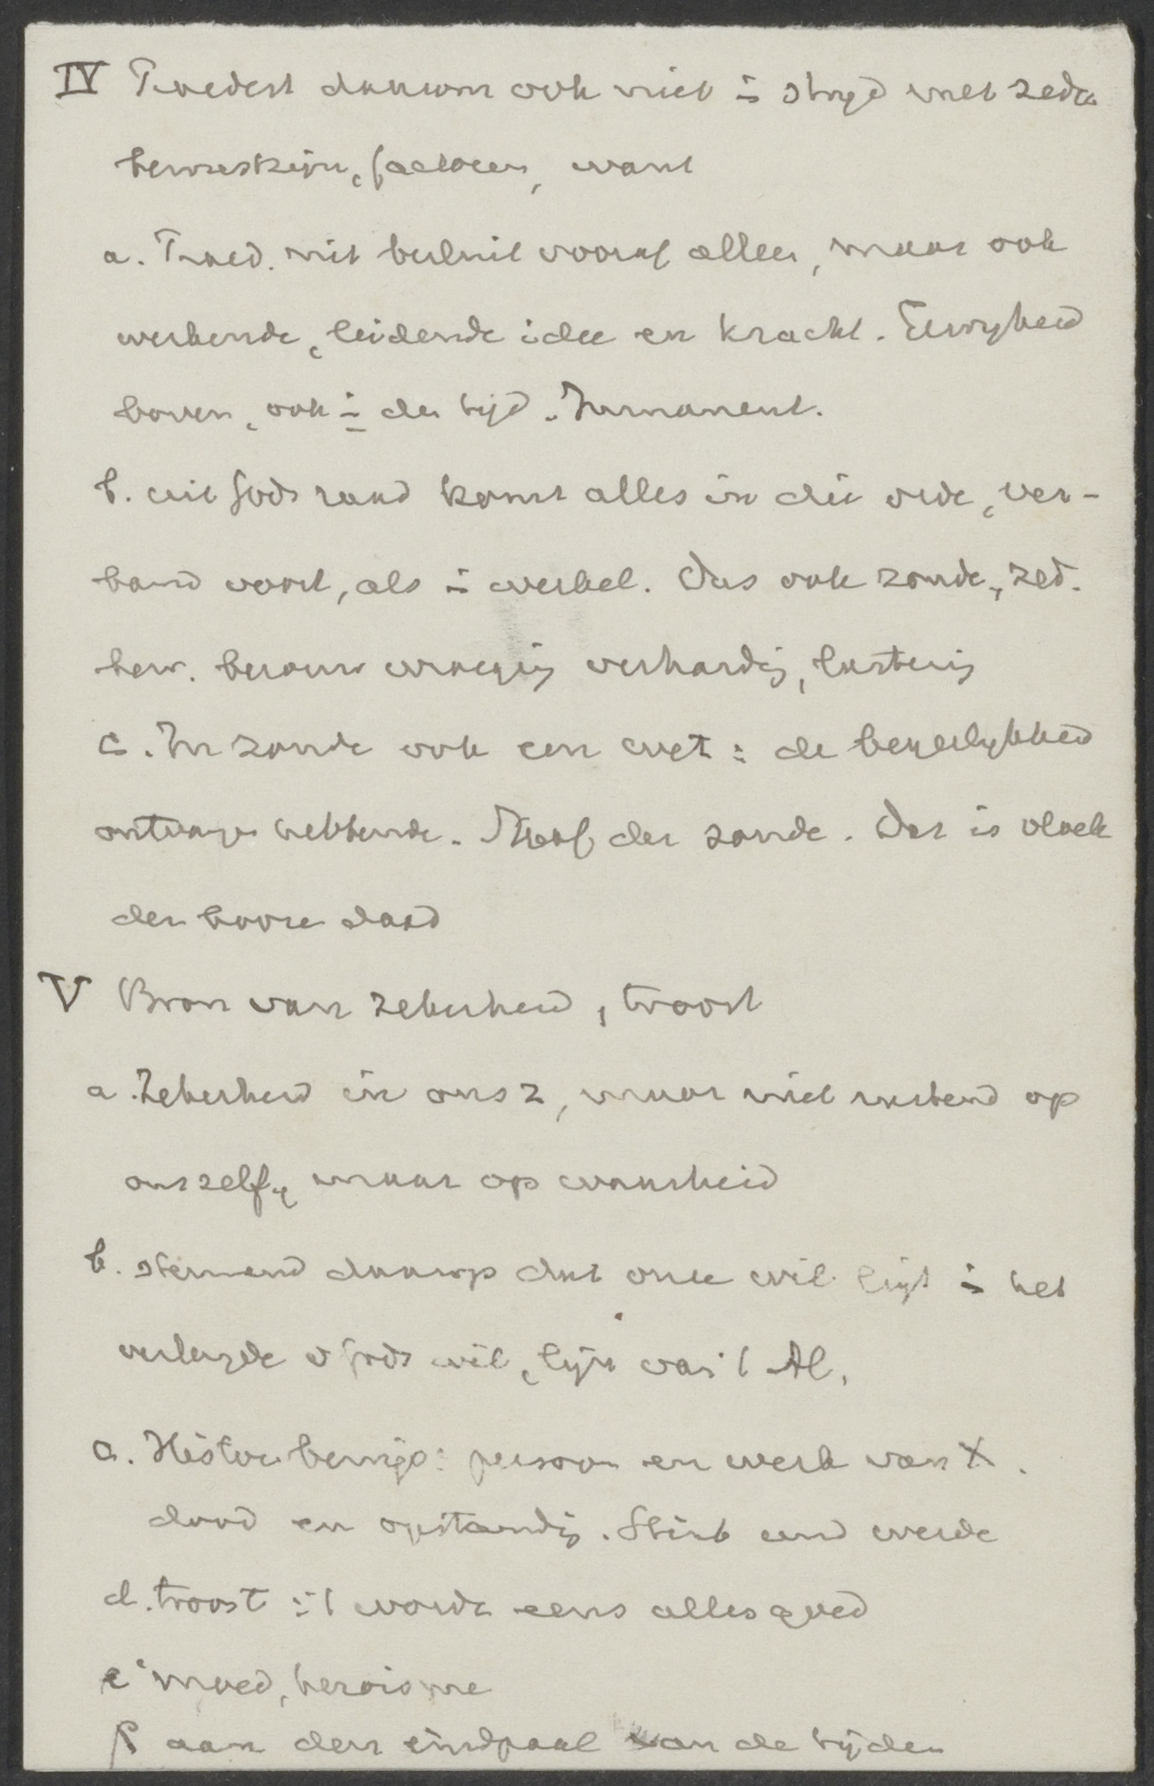 IV Praedest daarom ook niet i strijd met zede
bewustzijn, factoren, want
a. Praed. niet besluit vooraf alleen, maar ook
werkende, leidende idee en kracht. Eeuwigheid
boven, ook i den tijd. Immanent.
b. uit Gods raad komt alles in die orde, ver-
band voort, als i werkel. Dus ook zonde, zed.
bew. berouw wroeging verhardg, lastering
c. In zonde ook een wet: de begeerlijkheid
ontvangen hebbende. Straf der zonde. Das is vloek
der booze daad
V Bron van zekerheid, troost
a. Zekerheid in ons z, maar niet rustend op
ons zelf, maar op waarheid
b. steunend daarop dat onze wil ligt i het
verlengde v Gods wil, lijn van 't Al.
a. Histor. bewijs: persoon en werk van X.
dood en opstandig. Stirb und werde
d. troost: 't worde eens alles goed
e moed, heroisme
f aan den eindpaal van de tijden